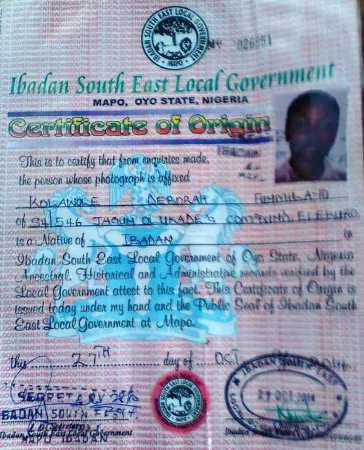 IBADAN SOUTH EAST LOCAL GOVERNMENT
MAPO
026551
Ibadan South East Local Government
MAPO, OYO STATE, NIGERIA
Certificate of Origin
This is to certify that from enquiries made,
the person whose photograph is affixed
DEBORAH
of COMPOUND, ELEKURO
is a Native of IBADAN
Ibadan South East Local Government of Oyo State, Nigeria
Ancestral, Historical and Administrative records verified by the
Local Government attest to this fact. This Certificate of Origin is
issued today under my hand and the Public Seal of Ibadan South
East Local Government at Mapo.
this 27th day of OCT.
SECRETARY
IBADAN SOUTH EAST
Secretary
Ibadan South East Local Government
MAPO IBADAN
IBADAN SOUTH EAST
27 OCT